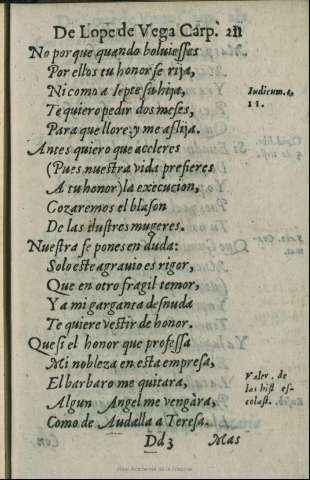 De Lope de Vega Carp. 211
No porque quando boluiesses
Por ellos tu honor se rija,
Ni como a Iepte su hija,
Iudicum. 
11.
Te quiero pedir dos meses,
Para que llore, y me aflija.
Antes quiero que acceleres
(Pues nuestra vida prefieres
A tu honor) la execucion,
Gozaremos el blason
De las ilustres mugeres.
Nuestra fe pones en duda:
Solo este agrauio es rigor,
Que en otro fragil temor,
Ya mi garganta desnuda
Te quiere vestir de honor.
Que si el honor que professa
Mi nobleza en esta empresa,
El barbaro me quitara,
Algun Angel me vengàra,
Como de Audalla a Teresa.
Valer. de
las hist es-
colast.
Dd3 Mas
Real Academia de la Historia